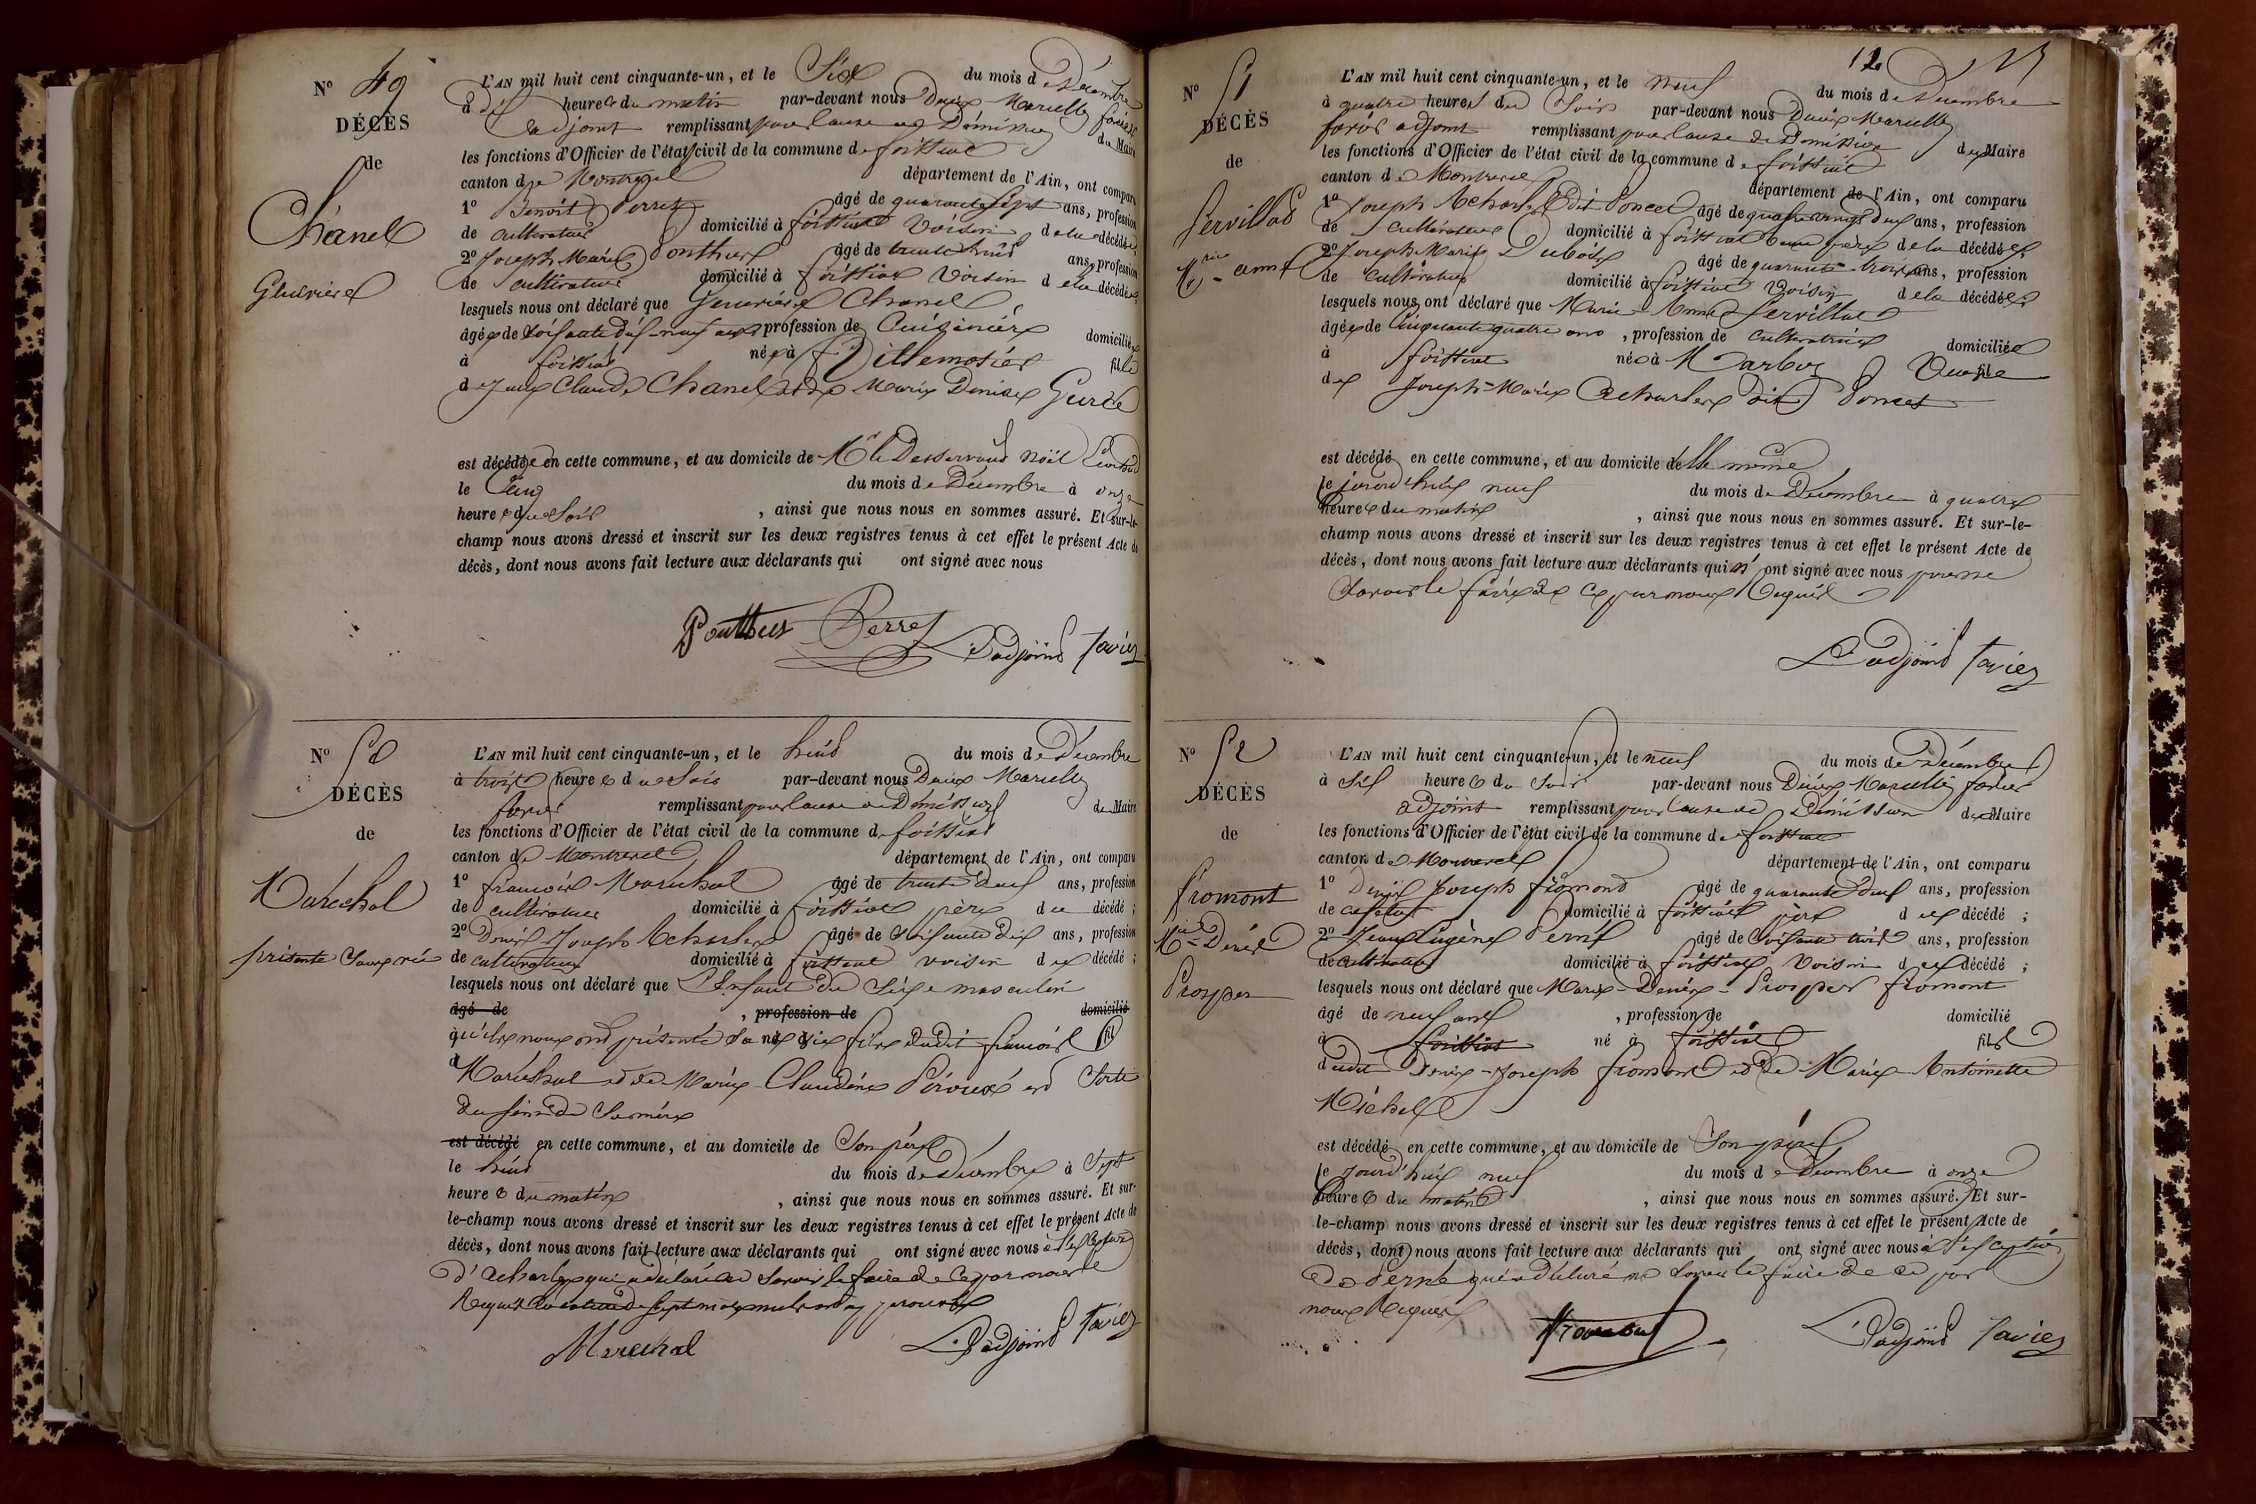 N° 49
DÉCÈS
de
Chanel
Genevieve
L'AN mil huit cent cinquante-un, et le Six du mois de Décembre
à dix heures du matin par-devant nous Denis Marcellin favier
l'adjoint remplissant pour cause de Démission du Maire
les fonctions d'Officier de l'état civil de la commune de foissiat
canton de Montrevel département de l'Ain, ont comparu
1° Benoit Perret âgé de quarante Sept ans, profession
de cultivateur domicilié à foissiat Voisin de la décédée
2° Joseph Marie Ponthus âgé de trente huit ans, profession
de cultivateur domicilié à foissiat Voisin de la décédée
lesquels nous ont déclaré que Genevieve Chanel
âgée de Soixante dix-neuf ans profession de Cuisinière domiciliée
à foissiat née à Villemotier fille
de Jean Claude Chanel et de Marie Denise
est décédée en cette commune, et au domicile de Mr le Desservant Noël
le Cinq du mois de Décembre à onze
heures du Soir, ainsi que nous nous en sommes assuré. Et sur-le-
champ nous avons dressé et inscrit sur les deux registres tenus à cet effet le présent Acte de
décès, dont nous avons fait lecture aux déclarants qui ont signé avec nous
Ponthus Perret
L'adjoint favier
N° 50
DÉCÈS
de
Maréchal
présenté Sans vie
L'AN mil huit cent cinquante-un, et le huit du mois de Décembre
à trois heures du Soir par-devant nous Denis Marcellin
favier remplissant pour cause de Démission du Maire
les fonctions d'Officier de l'état civil de la commune de foissiat
canton de Montrevel département de l'Ain, ont comparu
1° françois Maréchal âgé de trente deux ans, profession
de cultivateur domicilié à foissiat père du décédé ;
2° Denis Joseph Acharles âgé de Soixante dix ans, profession
de cultivateur domicilié à foissiat voisin du décédé ;
lesquels nous ont déclaré que L'Enfant du Sexe masculin
âgé de , profession de domicilié
qu'ils nous ont présenté Sans vie fils dudit françois fil
d Maréchal et de Marie Claudine et Sorti
du Sein de Sa mère
est décédé en cette commune, et au domicile de Son père
le huit du mois de Décembre à Sept
heures du matin, ainsi que nous nous en sommes assuré. Et sur-
le-champ nous avons dressé et inscrit sur les deux registres tenus à cet effet le présent Acte de
décès, dont nous avons fait lecture aux déclarants qui ont signé avec nous à l'exception
d'Acharles qui a déclaré ne Savoir le faire de ce par nous
Requis
Marechal
L'adjoint favier
12
N° 51
DÉCÈS
de
Servillat
Mrie anne
L'AN mil huit cent cinquante-un, et le neuf du mois de Décembre
à quatre heures du Soir par-devant nous Denis Marcellin
favier adjoint remplissant pour cause de Démission du Maire
les fonctions d'Officier de l'état civil de la commune de foissiat
canton de Montrevel département de l'Ain, ont comparu
1° Joseph Acharles dit Poncet âgé de quatre vingt deux ans, profession
de cultivateur domicilié à foissiat beau père de la décédée ;
2° Joseph Marie Dubois âgé de quarante trois ans, profession
de cultivateur domicilié à foissiat voisin de la décédée ;
lesquels nous ont déclaré que Marie Anne Servillat
âgée de Cinquante quatre ans, profession de cultivatrice domiciliée
à foissiat née à Marboz Veuve fil
de Joseph-Marie Acharles dit Poncet
est décédé en cette commune, et au domicile d'elle même
le jourd'hui neuf du mois de Décembre à quatre
heures du matin, ainsi que nous nous en sommes assuré. Et sur-le-
champ nous avons dressé et inscrit sur les deux registres tenus à cet effet le présent Acte de
décès, dont nous avons fait lecture aux déclarants qui n'ont signé avec nous pour ne
Savoir le faire de ce par nous Requis
L'adjoint favier
N° 52
DÉCÈS
de
fromont
Mrie Denis
Prosper
L'AN mil huit cent cinquante-un, et le neuf du mois de Décembre
à Six heures du Soir par-devant nous Denis Marcellin favier
adjoint remplissant pour cause de Démission du Maire
les fonctions d'Officier de l'état civil de la commune de foissiat
canton de Montrevel département de l'Ain, ont comparu
1° Denis Joseph fromont âgé de quarante deux ans, profession
de domicilié à foissiat père du décédé ;
2° Jean Eugène Pernet âgé de Soixante trois ans, profession
de cultivateur domicilié à foissiat Voisin du décédé ;
lesquels nous ont déclaré que Marie-Denis-Prosper fromont
âgé de neuf ans, profession de domicilié
à foissiat né à foissiat fils
dudit Denis-Joseph fromont et de Marie Antoinette
Michel
est décédé en cette commune, et au domicile de Son père
le jourd'hui neuf du mois de Décembre à onze
heures du matin, ainsi que nous nous en sommes assuré. Et sur-
le-champ nous avons dressé et inscrit sur les deux registres tenus à cet effet le présent Acte de
décès, dont nous avons fait lecture aux déclarants qui ont signé avec nous à l'exception
de Pernet qui a déclaré ne Savoir le faire de ce par
nous Requis
fromont
L'adjoint favier